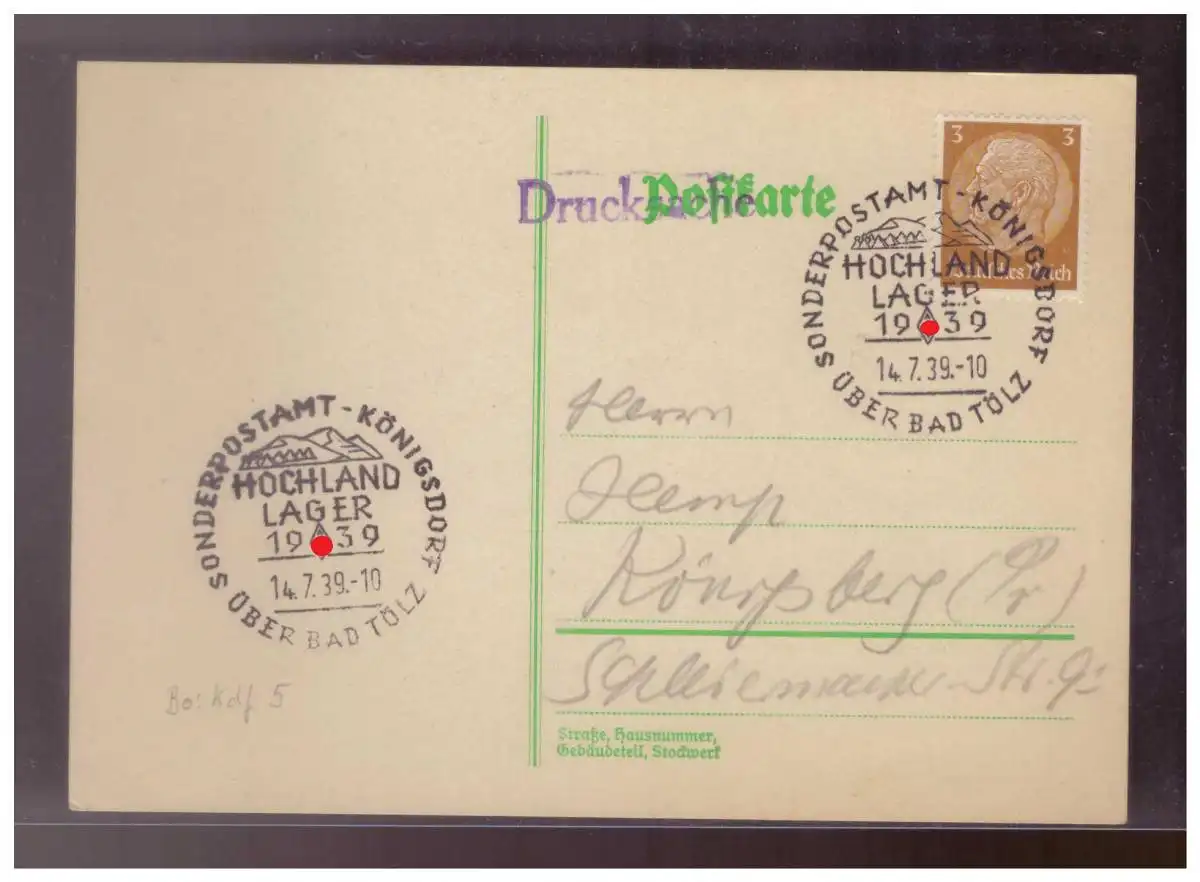 Postkarte
Drucksache
3 3
Deutsches Reich
SONDERPOSTAMT - KÖNIGSDORF
HOCHLAND
LAGER
1939
14.7.39.-10
ÜBER BAD TÖLZ
Herrn
Königsberg (Pr)
SONDERPOSTAMT - KÖNIGSDORF
HOCHLAND
LAGER
1939
14.7.39.-10
ÜBER BAD TÖLZ
Bo: Kdf 5
Straße, Hausnummer,
Gebäudeteil, Stockwerk